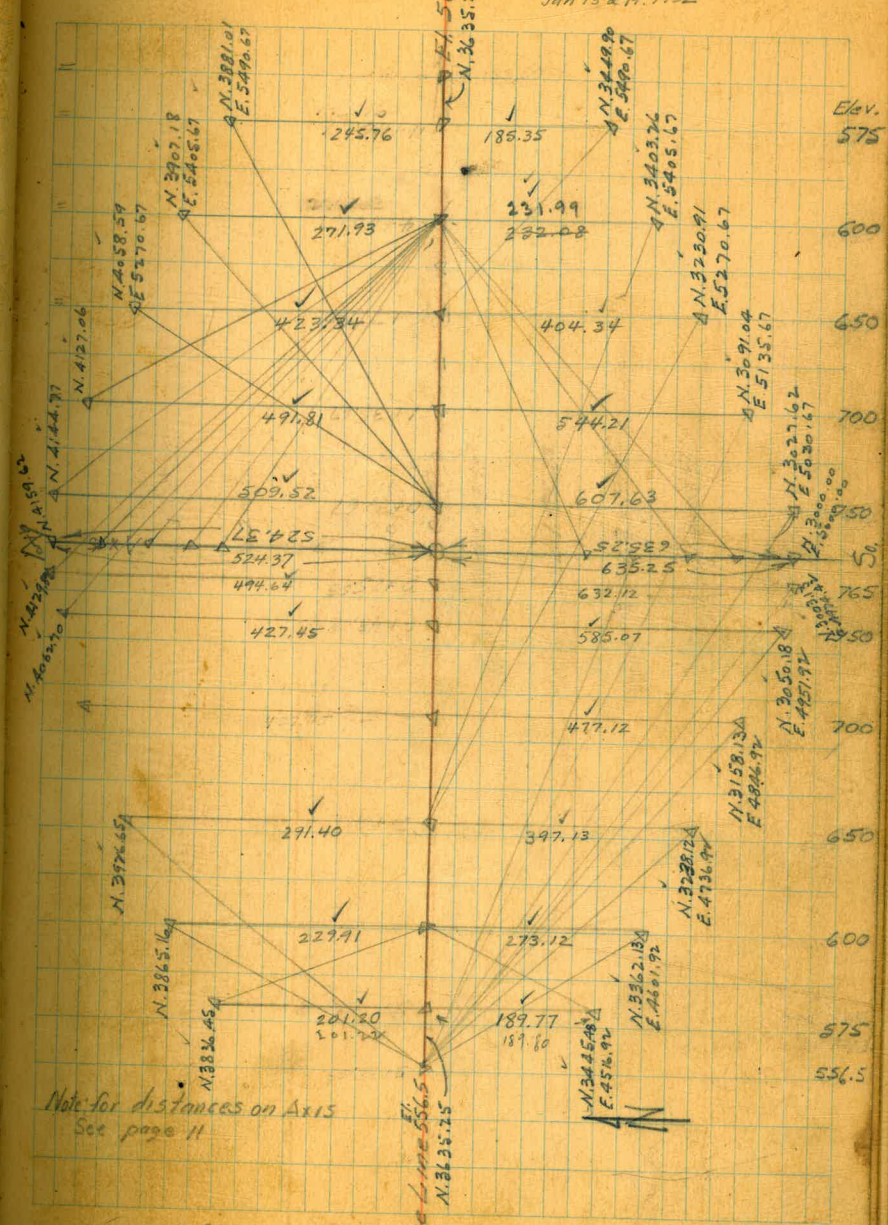 N. 3635.
N. 3881.01
E. 5490.67
N. 3449.90
E. 5490.67
Elev.
245.76
185.35
575
N. 3907.18
E. 5405.67
N. 3403.26
E. 5405.67
271.93
231.99
232.08
600
N. 4058.59
E 5270.67
N. 3230.91
E. 5270.67
423.34
404.34
650
N. 4127.06
N 3091.04
E 5135.67
491.81
544.21
700
N. 4144.77
N. 3027.62
E 5030.67
509.52
607.63
750
N 4159.62
N. 3000.00
E. 5000.00
524.37
635.25
524.37
635.25
So.
494.64
632.12
765
N. 4062.70
427.45
585.07
N. 3050.18
E. 4951.92
477.12
700
N. 3158.13
E 4846.92
N. 3926.65
291.40
397.13
650
N. 3238.12
E. 4736.92
N. 3865.16
229.91
273.12
600
N. 3362.13
E. 4601.92
N. 3836.45
201.20
189.77
575
189.80
N. 3445.48
E. 4516.92
556.5
Note for distances on Axis
See page 11
El.
Line 556.5
N. 3635.25